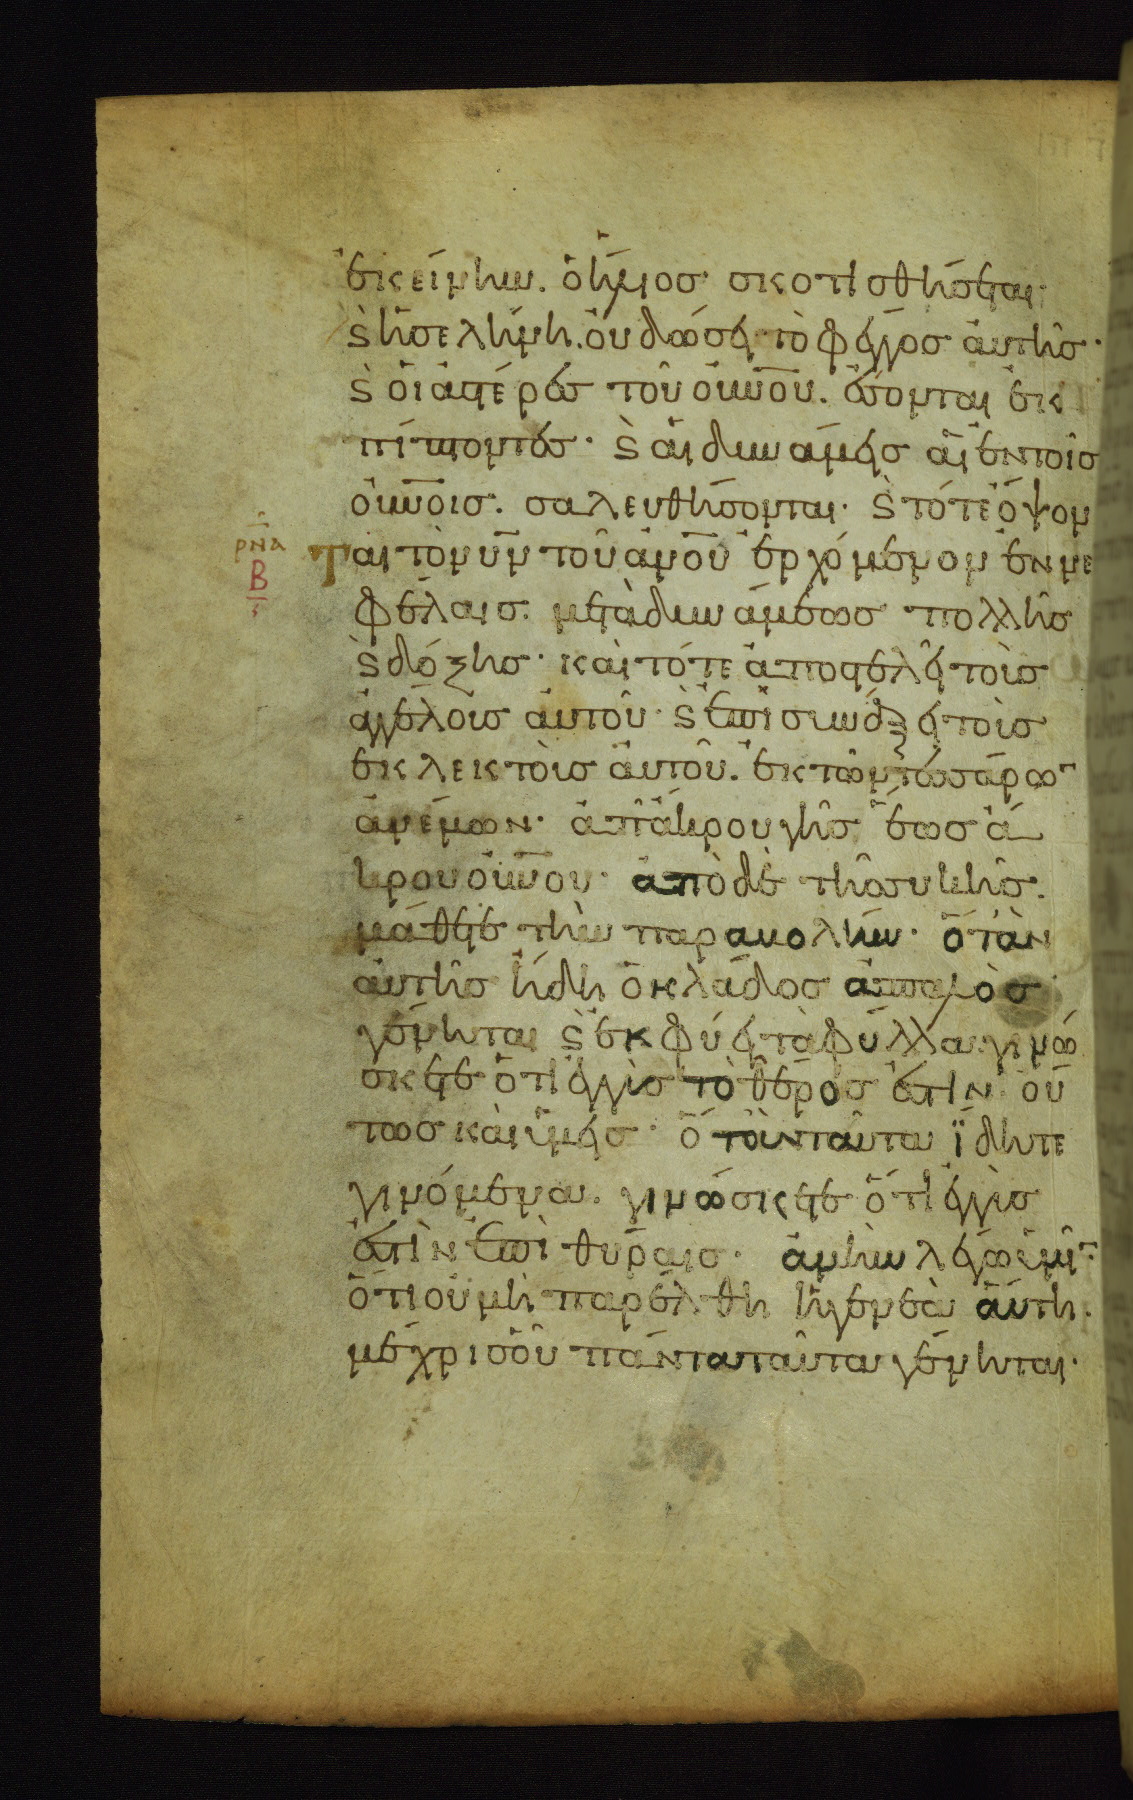 ἐκείνην. ὁ ἥλιος σκοτισθήσεται·
ϗ ἡ σελήνη. οὐ δώσει τὸ φέγγος αὐτῆς·
ϗ οἱ ἀστέρες τοῦ οὐνοῦ. ἔσονται ἐκ
πίπτοντες· ϗ αἱ δυνάμεις αἱ ἐν τοῖς
οὐνοῖς. σαλευθήσονται· ϗ τότε ὄψον
ται τὸν υν τοῦ ανου ἐρχόμενον ἐν νε
φέλαις. μετὰ δυνάμεως πολλῆς
ϗ δόξης· καὶ τότε ἀποστελεῖ τοὺς
ἀγγέλους αὐτοῦ· ϗ ἐπισυνάξει τοὺς
ἐκλεκτοὺς αὐτοῦ. ἐκ τῶν τεσσάρων
ἀνέμων· ἀπ' ἄκρου γῆς ἕως ἄ
κρου οὐνοῦ· ἀπὸ δὲ τῆς συκῆς.
μάθετε τὴν παραβολήν· ὅταν
αὐτῆς ἤδη ὁ κλάδος ἁπαλὸς
γένηται ϗ ἐκφύει τὰ φύλλα. γινώ
σκετε ὅτι ἐγγὺς τὸ θέρος ἐστίν· οὕ
τως καὶ ὑμεῖς· ὅταν ταῦτα ἴδητε
γινόμενα. γινώσκετε ὅτι ἐγγύς
ἐστιν ἐπὶ θύραις· ἀμὴν λέγω ὑμῖν
ὅτι οὐ μὴ παρέλθη ἡ γενεὰ αὕτη.
μέχρις οὗ πάντα ταῦτα γένηται·
ρνα
Β